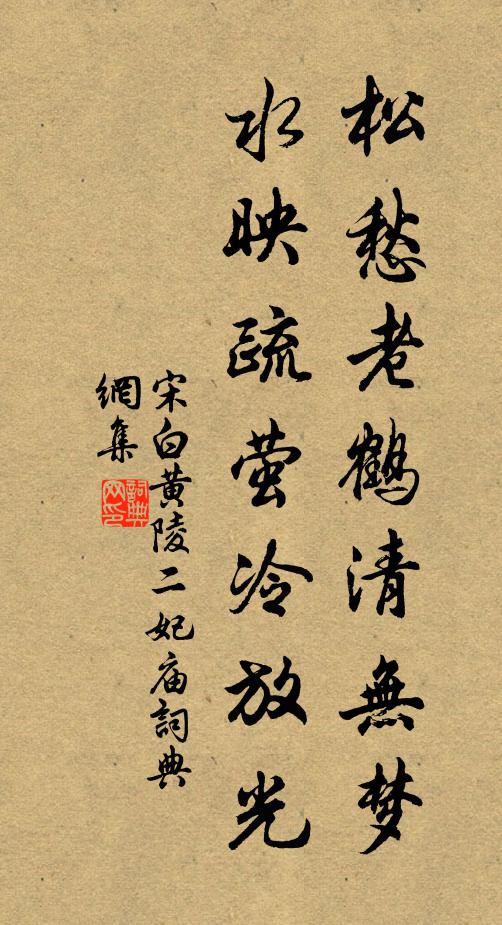 松愁老鹤清無梦
水映疏萤冷放光
宋白黄陵二妃庙詞典
網集
詞典
网印